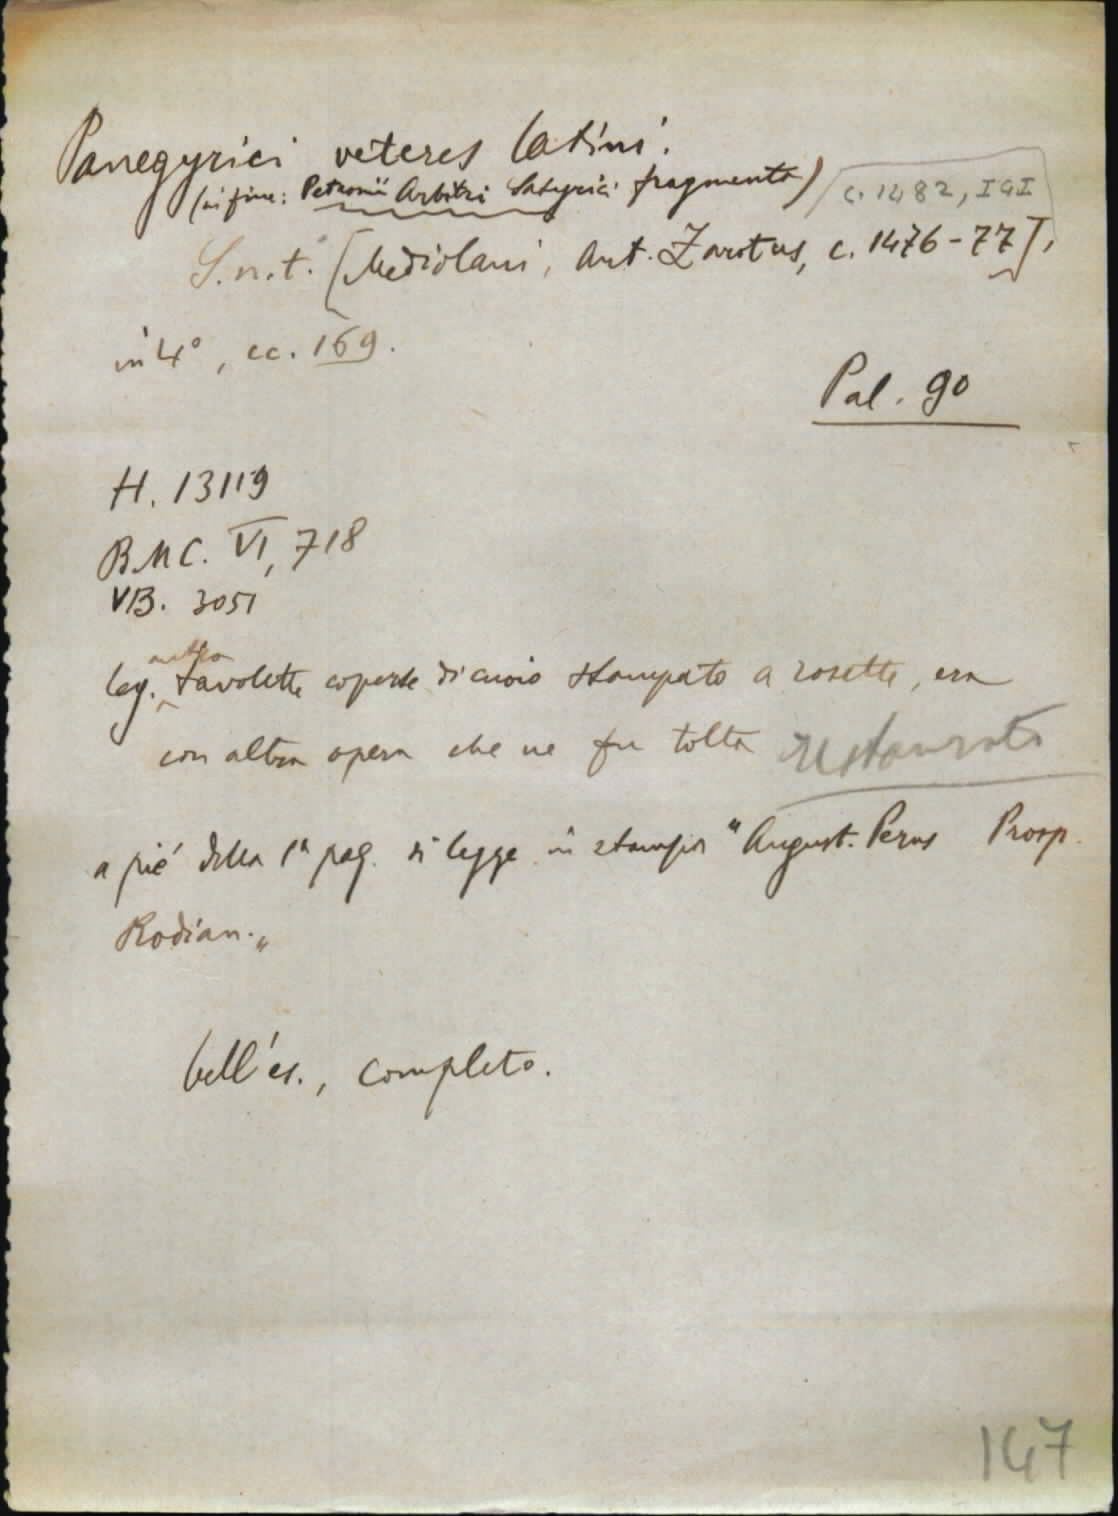 Panegyrici veteres latini.
(in fine: Petronii Arbitri Satyrici fragmenta) c. 1482, IGI
S.n.t. [Mediolani, Ant. Zarotus, c. 1476-77],
in 4°, cc. 169.
Pal. 90
H. 13119
BMC. VI, 718
VB. 3051
antica
leg. tavolette coperte di cuoio stampato a rosette, era
con altra opera che ne fu tolta restaurato
a piè della 1ª pag. si legge in stampa "August. Perus Prosp.
Rodian."
bell'es., completo.
147